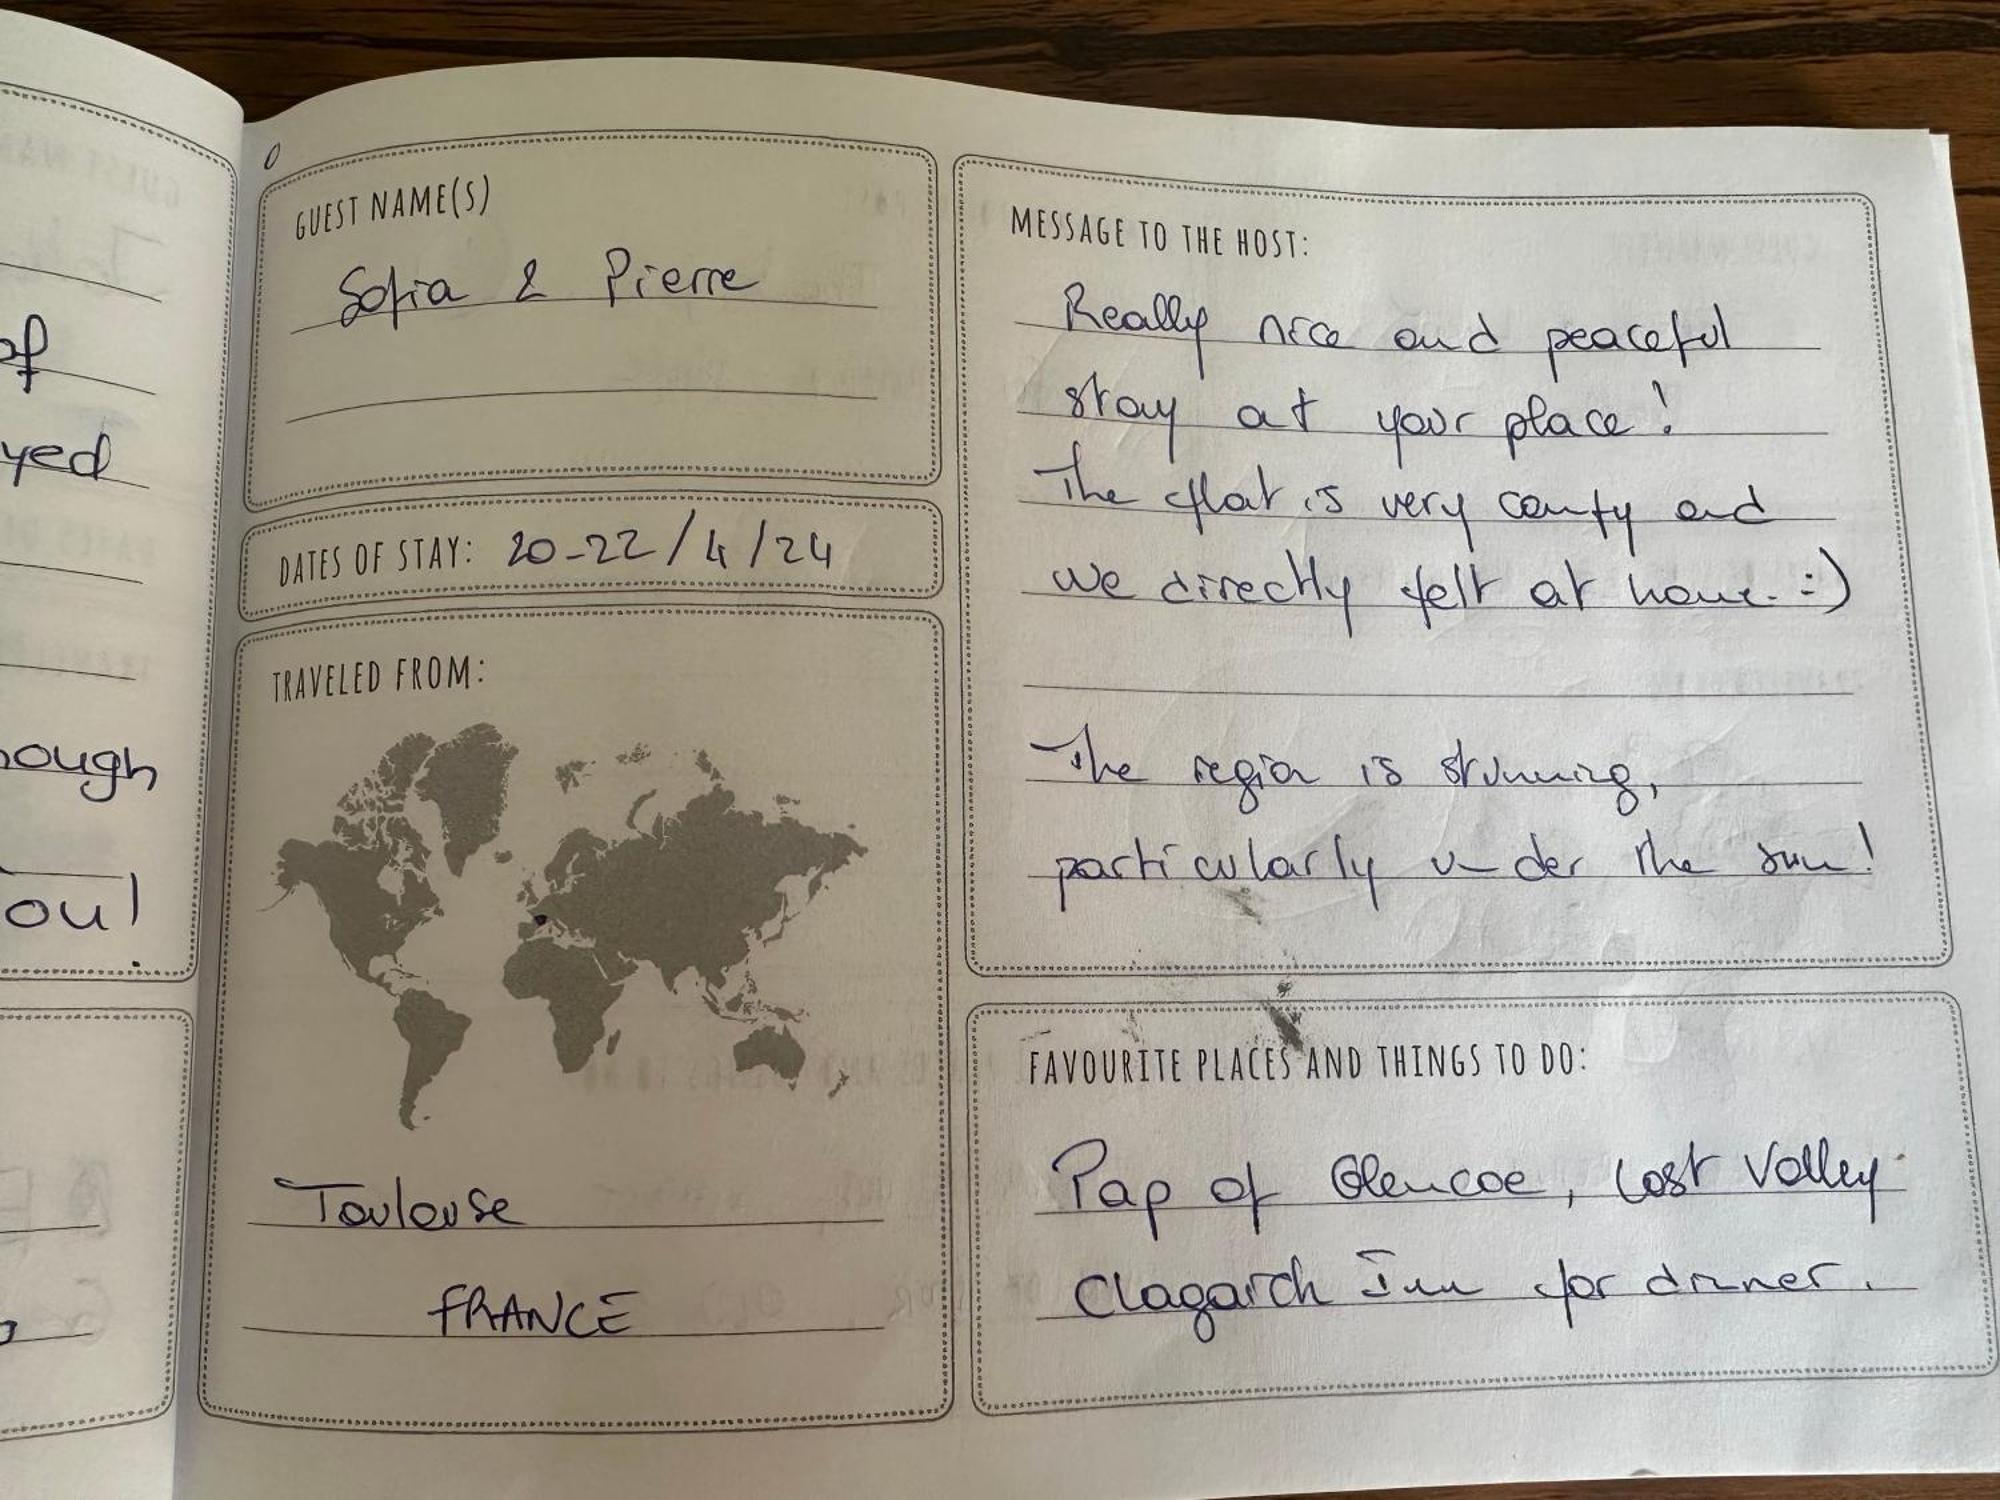 of
yed
ough
ou!
GUEST NAME(S)
Sofia & Pierre
DATES OF STAY: 20-22/4/24
TRAVELED FROM:
Toulouse
FRANCE
MESSAGE TO THE HOST:
Really nice and peaceful
stay at your place!
The flat is very comfy and
we directly felt at home :)
The region is stunning,
particularly under the sun!
FAVOURITE PLACES AND THINGS TO DO:
Pap of Glencoe, Lost Valley
Clagaich Inn for dinner.